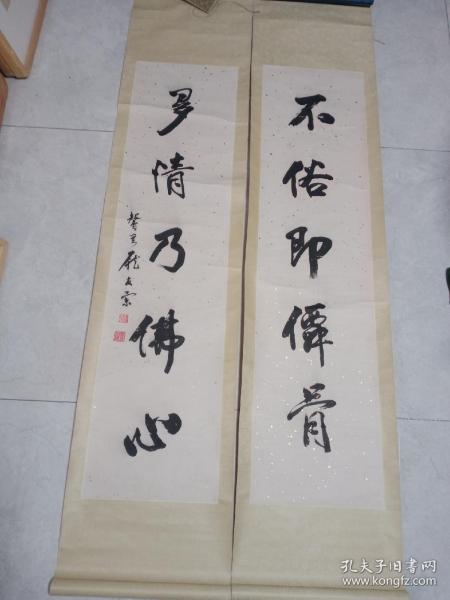 不俗即僊骨
多情乃佛心
孔夫子旧书网
www.kongfz.com